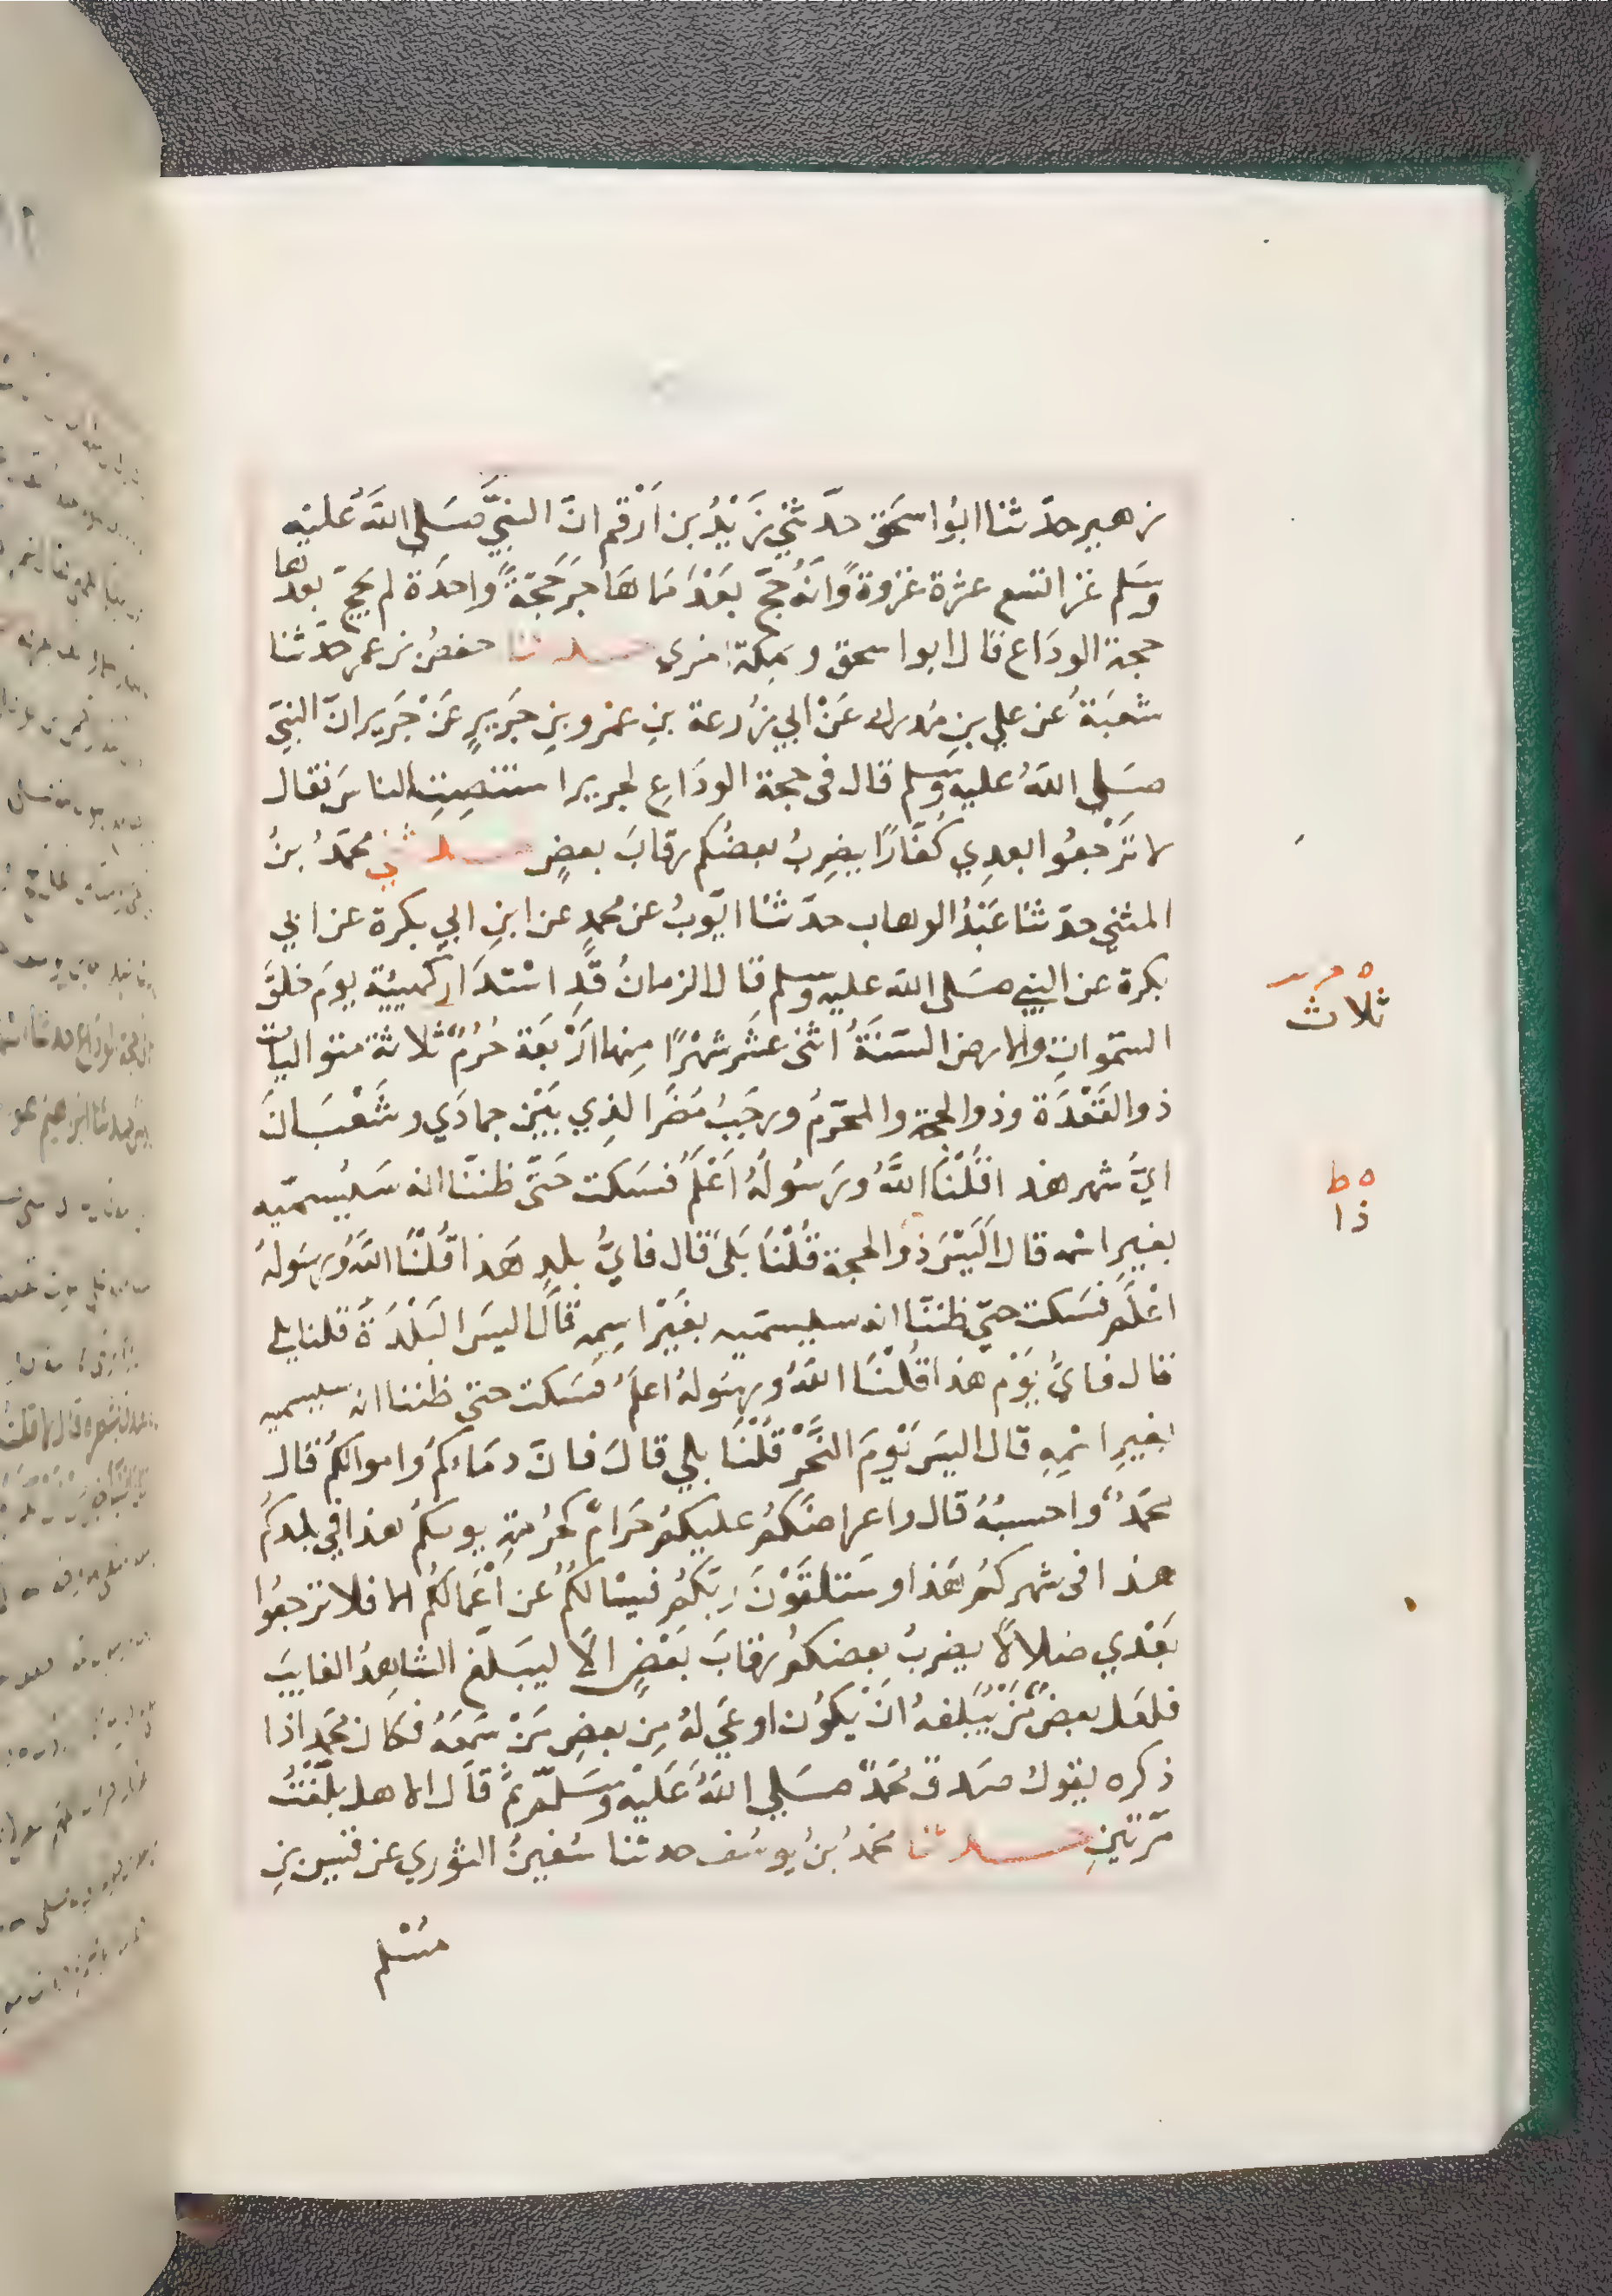 زهير حدّثنا ابُوا سحَق حدّثني زَيْدُ بن اَرْقم انّ النبيَّ صَلي اللهَ عَليْه
وسَلم غزا تسع عشرة غزوةً وَّانّهُ حجّ بَعْدَ مَا هَاجَرَ حَجّةً وَّاحدَة لم يحجّ بعدها
حجة الودَاع قال ابوا سحق وبمكة اخرى حدثنا حفصُ بن عمر حدّثنا
شعبَةُ عَن علي بنِ مُدركٍ عَنْ ابي زُرعة بنِ عمرو بنِ جَرَيرٍ عَنْ جَرَير انّ النبيَ
صَلي اللهُ عليهِ وَسلم قال في حجة الودَاعِ لجرير استنصِتِ الناسَ فقال
لا تَرْجعُوا بعدِي كُفَّارًا يضرِبُ بعضُكم رقابَ بعضٍ حدثني محمّدُ بنُ
المثني حدّثنا عَبْدُ الوهاب حدّثنا ايّوبُ عن محمدٍ عن ابنِ ابي بكرة عن ابي
بكرة عن النبيِ صَلي الله عليه وسلم قال الزمانُ قَدِ اسْتدَارَ كهيئةِ يومَ خلقَ
السّموات والارض السّنَةُ اثنى عشَر شهْرًا مِنها ارْبعَة حُرُمٌ ثلاثة متواليات
ذو القَعْدَة وذو الحجة والمحرّمُ ورجَبُ مُضَر الذِي بَيْن جمادَي وشَعْبَانَ
ايُّ شهر هذا قلْنَا اللَّهُ ورَسُولُهُ اَعْلَمُ فسَكت حَتّى ظننّا انه سَيُسمّيه
بغيرِ اسمه قال اَليْسَ ذو الحجة قُلْنَا بَلَى قال فايُّ بلدٍ هَذا قُلْنَا اللهُ وَرسُولهُ
اعْلَمُ فسَكت حتّي ظننّا انه سيسمّيه بغَيْر اسِمِه قَالَ اليسَ البَلْدَةَ قلنا بلي
قال فايُّ يَوْم هذا قُلْنَا اللهُ ورسُولهُ اعلمُ فسَكت حتي ظننا انه سيسميه
بغيرِ اسْمِهِ قال اليسَ يَوْمَ النَّحْر قُلْنَا بلي قالَ فانّ دمَاءكمُ واموالكُم قال
محمّدٌ واحسبُهُ قال واعراضَكمُ عليكمُ حَرَامٌ كحُرمَةِ يومكمُ هذا في بلدِكمُ
هذا في شهركمُ هَذا وسَتلقَوْنَ رَبّكمُ فيسْالكُمْ عن اَعْمَالكُم الا فلا ترجعُوا
بَعْدي ضلالاً يضربُ بعضكمُ رقابَ بَعْضٍ الاَ ليبلّغ الشاهدُ الغايبَ
فلعَل بعض مَنْ يُبَلَّغهُ انَ يكُون اوعَي لهُ مِن بعضِ مَنْ سَمعَهُ فكان محمّد اذا
ذكره يقولُ صدق محمّدٌ صَلي اللهُ عَليْهِ وَسَلّم ثمّ قاَلَ الا هل بلّغْتُ
مرّتينِ حدثنا محمدُ بنُ يوسُف حدثنا سُفينُ الثوري عن قيس بنِ
مُسْلم
ثلاث
ه ط
ذا